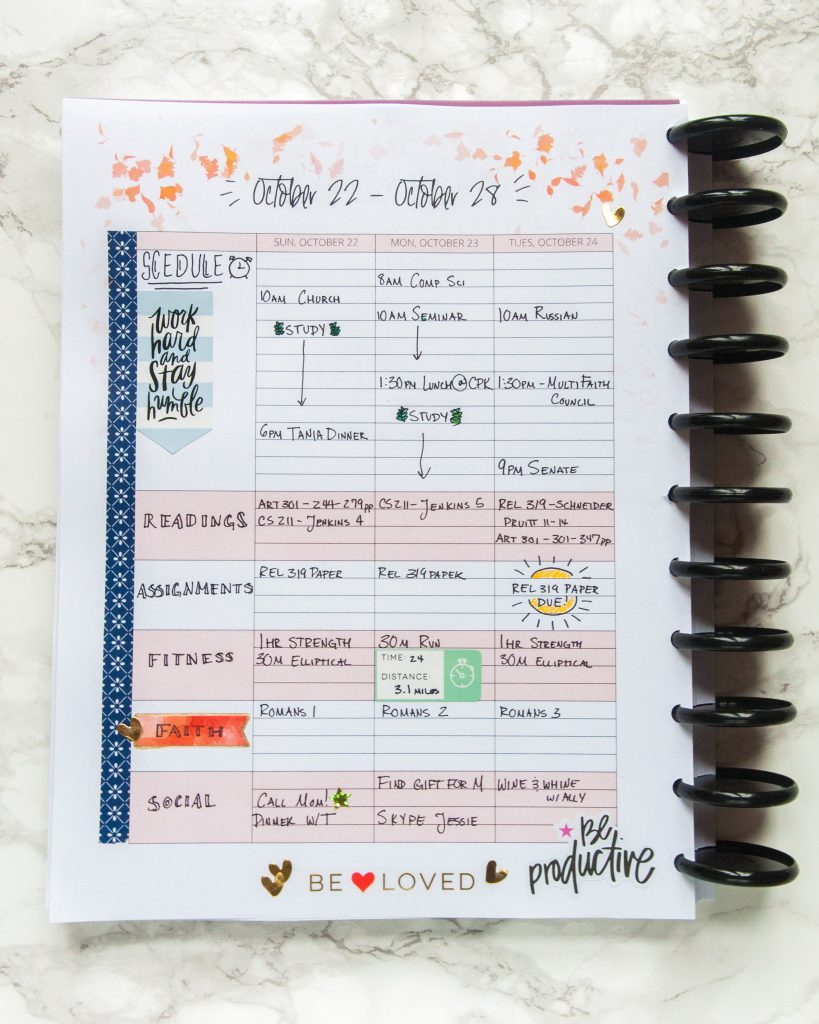 October 22 - October 28
SUN, OCTOBER 22 MON, OCTOBER 23 TUES, OCTOBER 24
SCEDULE
work
hard
and
stay
humble
10AM CHURCH
STUDY
6PM TANIA DINNER
8AM COMP SCI
10AM SEMINAR
1:30PM LUNCH@CPK
STUDY
10AM RUSSIAN
1:30PM - MULTIFAITH
COUNCIL
9PM SENATE
READINGS
ART 301 - 244-279pp
CS 211 - JENKINS 4
CS211 - JENKINS 5
REL 319 - SCHNEIDER
PRUITT 11-14
ART 301 - 301-347pp
ASSIGNMENTS
REL 319 PAPER
REL 319 PAPER
REL 319 PAPER
DUE!
FITNESS
1HR STRENGTH
30M ELLIPTICAL
30M RUN
TIME: 24
DISTANCE:
3.1 MILES
1HR STRENGTH
30M ELLIPTICAL
FAITH
ROMANS 1
ROMANS 2
ROMANS 3
SOCIAL
CALL MOM!
DINNER W/T
FIND GIFT FOR M
SKYPE JESSIE
WINE & WHINE
W/ ALLY
BE LOVED
Be
productive